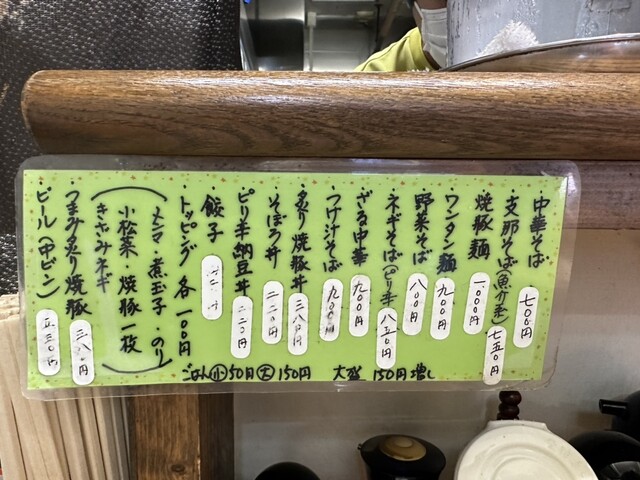 ・中華そば 七〇〇円
・支那そば(魚介系) 七五〇円
・焼豚麺 一〇〇〇円
・ワンタン麺 九〇〇円
・野菜そば 八〇〇円
・ネギそば(ピリ辛) 八五〇円
・ざる中華 九〇〇円
・つけ汁そば 九〇〇円
・炙り焼豚丼 三八〇円
・そぼろ丼 二二〇円
・ピリ辛納豆丼 二二〇円
・餃子
・トッピング 各一〇〇円
(メンマ・煮玉子・のり
小松菜・焼豚一枚
きざみネギ)
・つまみ炙り焼豚 三八〇円
・ビール(中ビン) 五五〇円
ごはん小50円大150円 大盛 150円増し